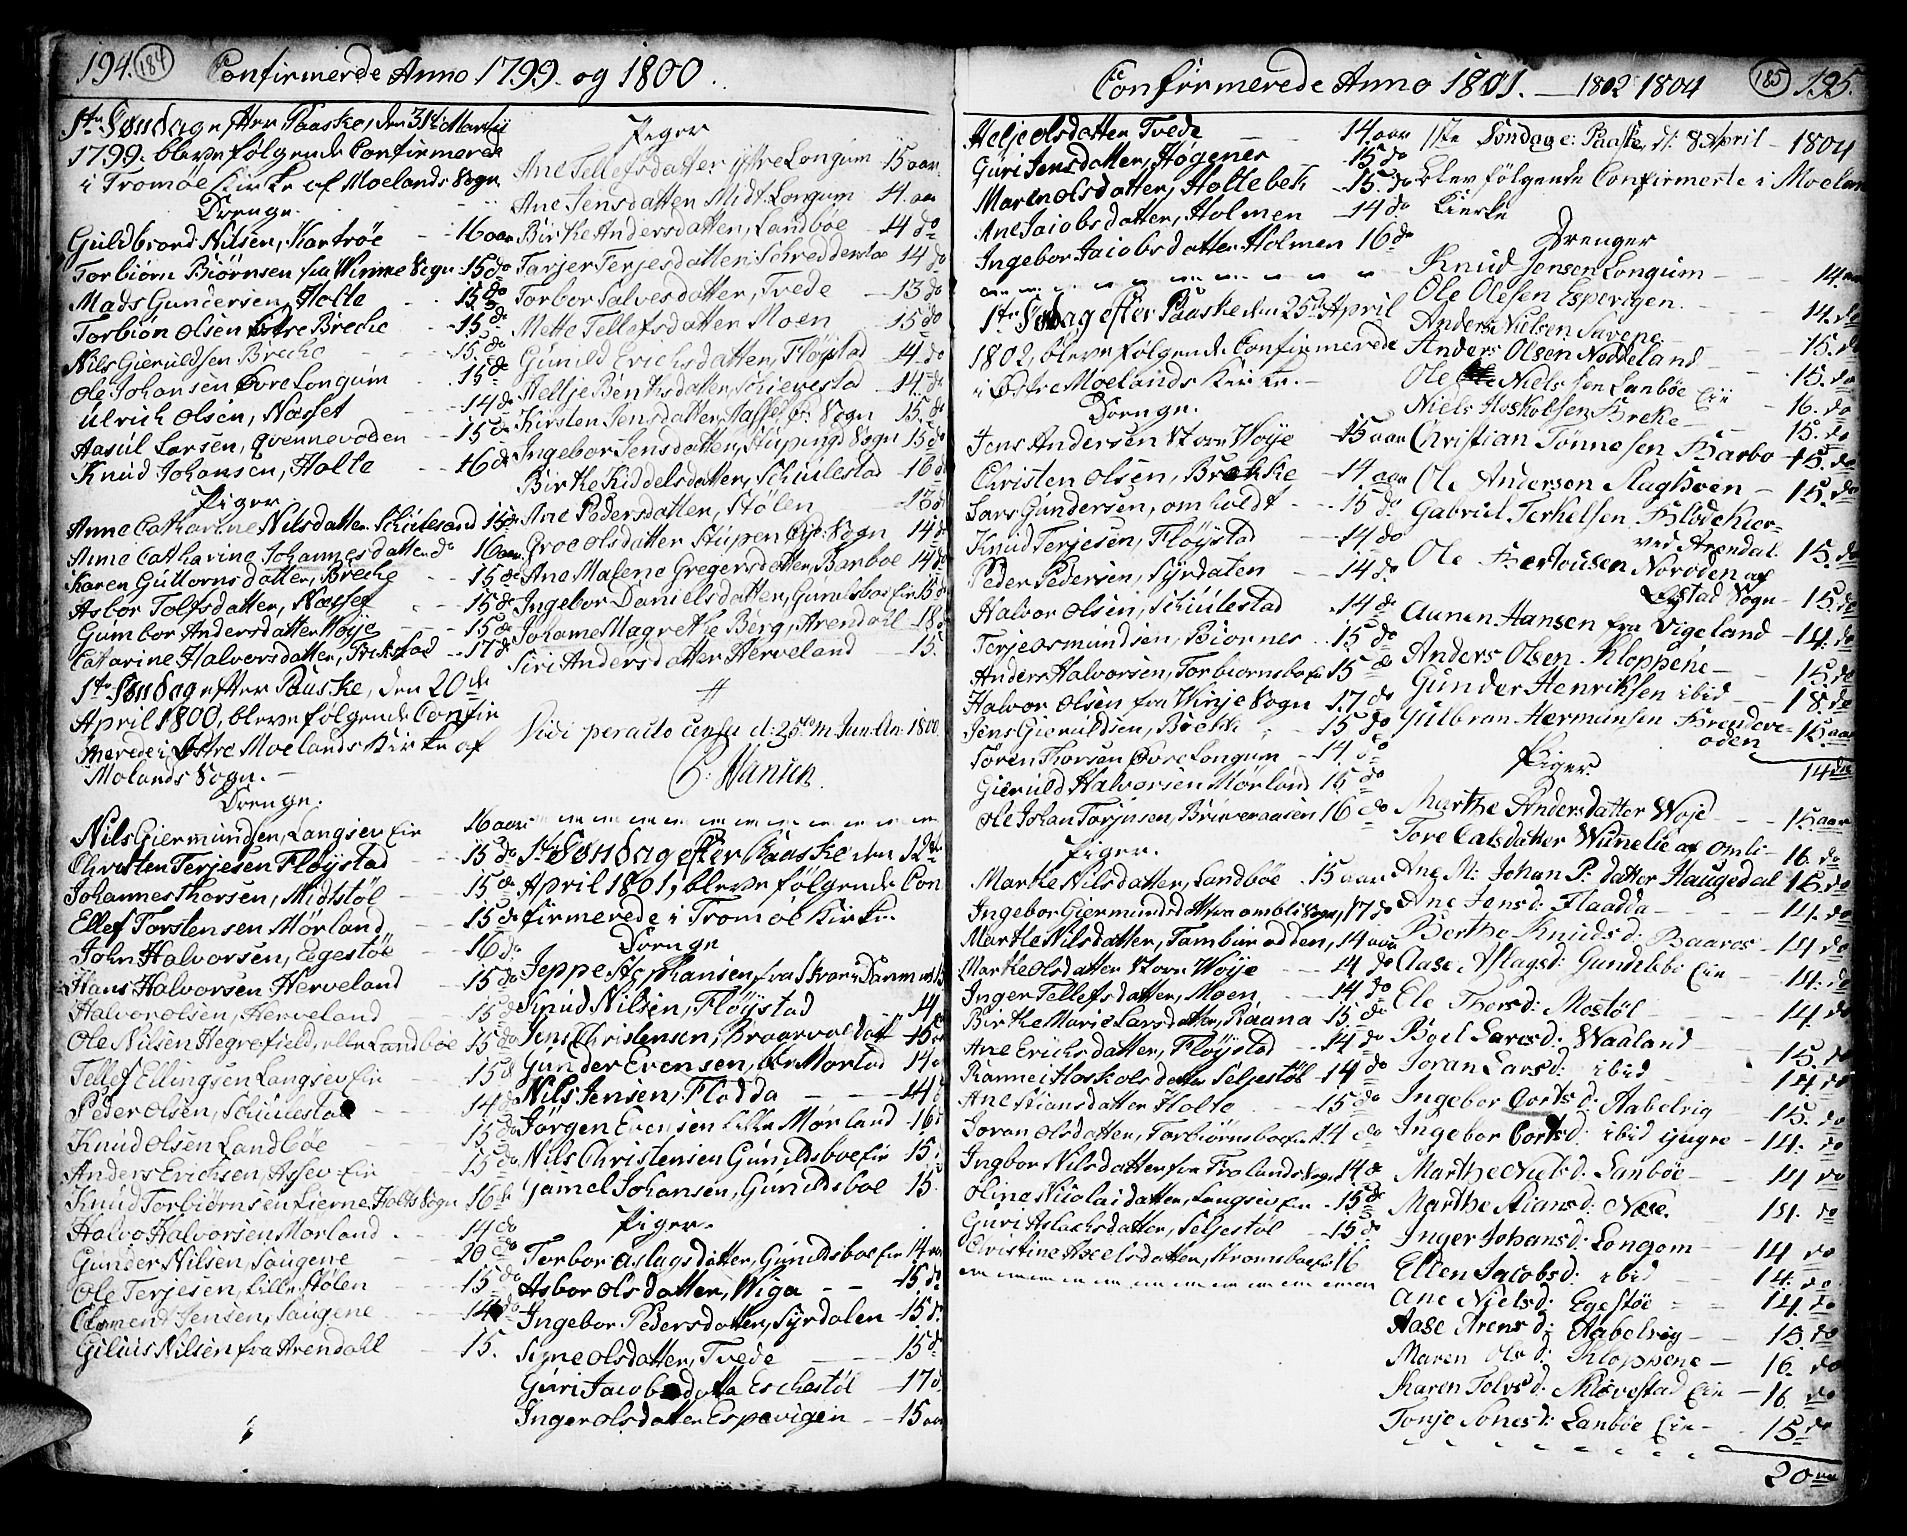 194. 184 Confirmerde Anno 1799. og 1800.
1ste Søndag efter Paaske, den 31te Martij
1799. bleve følgende Confirmerede
i Tromøe Kirke af Moelands Sogn
Drenge.
Guldbrand Nilsen, Kartrøe - 16 aar
Torbiørn Biørnsen fra Winnie Sogn - 15 do
Mads Gundersen, Holte - 15 do
Torbiön Olsen Østre Breche - 15 do
Nils Gieruldsen Breche - 15 do
Ole Johansen Øvre Longum - 15 do
Ulrich Olsen, Næsset - 14 do
Aasul Larsen, Qvennevoden - 15 do
Knud Johansen, Holte - 16 do
Piger
Anne Catharine Nilsdatter Schiulestad 15 do
Anne Catharine Johannesdatter do 16 aar
Karen Guttormsdatter, Breche - 15 do
Asbor Tolfsdatter, Næsset - 15 do
Gumbor Andersdatter Woje - 15 do
Catarine Halvorsdatter, - 17 do
1ste Søndag efter Paaske, den 20de
April 1800, bleve følgende Confir
merede i Østre Moelands Kirke af
Molands Sogn. -
Drenge.
Nils Giermundsen, Langsev Eie 16 aar
Christen Terjesen Fløystad - 15 do
Johannes Thorsen, Midtstøl - 15 do
Ellef Torstensen Mørland - 15 do
John Halvorsen, Egestøe - 16 do
Hans Halvorsen Herveland - 15 do
Halvor Olsen, Herveland - 15 do
Ole Nilsen Hegrefield, elle Landbøe 15 do
Tellef Ellingsen Langsev Eie - 15 do
Peder Olsen, Schiulestad - 14 do
Knud Olsen Landbøe - 15 do
Anders Erichsen Assev Eie - 15 do
Knud Torbiørnsen Lierne, Holts Sogn 16 do
Halvo Halvorsen Mørland - 14 do
Gunder Nilsen, Saugene - 20 do
Ole Terjesen, Lille Stølen - 15 do
Clement Jensen, Saugene - 14 do
Giluis Nilsen fra Arendahl - 15.
Piger
Ane Tellefsdatter Øftre Longum - 15 aar
Ane Jensdatter Midt Longum - 14. aar
Birthe Andersdatter, Landbøe - 14 do
Tarjer Terjesdatter Schreddenstøe 14 do
Torbor Salvesdatter, Tvede - 13 do
Mette Tellefsdatter Moen - 15 do
Gunild Erichsdatter, Fløystad - 14. do
Helje Bentsdatter, Schierestad - 14. do
Kirsten Jensdatter, Sogn 15. do
Ingebor Jensdatter, Stuping Sogn 15 do
Birthe Kiddelsdatter, Schiulestad - 16 do
Ane Pedersdatter, Stølen - 15 do
Groe Olsdatter Stupen Sogn 14 do
Ane Malene Gregersdatter, Barboe 14 do
Ingebor Danielsdatter, Gundsboe Eie 15 do
Johanne Magrethe Berg, Arendahl - 18 do
Siri Andersdatter Herveland - 15.
Vidi peracto censu d: 25de m. Jun. An. 1800.
P: Hansen
1ste Søndag efter Paaske den 12te
April 1801, bleve følgende Con
firmerede i Tromøe Kirke.
Drenge
Jeppe Stephansen, fra i Danmark 15
Knud Nilsen, Fløystad - 14
Jens Christensen, Braarvoldatt - 15
Gunder Evensen, Lille Mørland 14
Nils Jensen, Flodda - 14 do
Jørgen Evensen lille Mørland - 16
Nils Christensen Gundsboe Eie 15.
Gamel Johansen, Gundsboe 15.
Piger.
Torbor Aslagsdatter, Gundsboe Eie 14 aar
Asbor Olsdatter, Wiga - 15 do
Ingebor Pedersdatter, Syrdalen - 15 do
Signe Olsdatter, Tvede - 15 do
Guri Jacobsdatter Eschestøl - 17 do
Inger Olsdatter Espevigen - 15 aar
Confirmerede Anno 1801. - 1802 1804 185 195.
Helje Olsdatter Tvede - 14 aar
Guri Jensdatter, Høgenes - 15 do
Maren Olsdatter, Holtebek - 15. do
Ane Jacobsdatter, Holmen - 14 do
Ingebor Jacobsdatter Holmen 16 do
1ste Søndag efter Paaske den 25de April
1802, bleve følgende Confirmerede
i Østre Moelands Kirke. -
Drenge.
Jens Andersen Store Woje - 15 aar
Christen Olsen, Brekke - 14 aar
Lars Gundersen, Omholdt - 15 do
Knud Terjesen, Fløystad - 14 do
Peder Pedersen, Syrdalen - 14 do
Halvor Olsen, Schiulestad - 14 do
Terje Osmundsen, Biørnes - 15 do
Anders Halvorsen, Torbiørnsboe Eie 15 do
Halvor Olsen fra Winje Sogn 17 do
Jens Gieruldsen, Breche - 15 do
Søren Thorsen Øvre Longum - 14 do
Gieruld Halvorsen Mørland 15 do
Ole Johan Torjusen, 16 do
Piger.
Marthe Nilsdatter, Landbøe 15 aar
Ingebor Giermundsdatter fra Ombli Sogn, 17 do
Marthe Nilsdatter, Tambur odden, 14 aar
Marthe Olsdatter Store Woje - 14 do
Inger Tellefsdatter, Moen - 14 do
Birthe Marie Larsdatter, Raana 15. do
Ane Erichsdatter, Fløystad - 14 do
Rannei Hoskolsdatter Seljestøl - 14 do
Ane Stiansdatter Holte - 15 do
Joran Olsdatter, Torbiørnsboe Eie 14 do
Ingbor Nilsdatter fra Frolands Sogn, 14 do
Oline Nicolaidatter, Langsev Eie - 15 do
Guri Aslachsdatter, Seljestøl - 15 do
Christine Axelsdatter, Strømsboe Eie 16
1ste Søndag e: Paaske, d: 8 April - 1804
blev følgende Confirmerte i Moeland
Kierke
Drenger
Knud Jensen Longum - 14. aar
Ole Olesen Espevigen - 14. do
Anders Nielsen Savene - 15. do
Anders Olsen Noddeland - 15. do
Ole Nielssen Lanbøe Eie - 16. do
Niels Hoskolsen Breke - 15. do
Christian Tønnesen Barbo - 15. do
Ole Andersen Slaghoen - 15. do
Gabriel Terkelsen Flødekier
ved Arendal
Ole Bertousen Noroden af - 15. do
Øjestad Sogn - 15. do
Aanen Hansen fra Vigeland - 14. do
Anders Olsen Kloppene - 15. do
Gunder Henriksen ibid - 18. do
Gulbran Hermansen
oden - 15 aar
14 do
Piger.
Marthe Andersdatter Woje - 15 aar
Tore Calsdatter af Omli - 16. do
Ane M: Johan P: datter Haugedal 15. do
Ane Jensd: Flaadda - 14. do
Berthe Knudsd: Baaros - 14 do
Aase Aslagsd: Gundesbø Eie - 14. do
Ele Thorsd: Mostøl - 14. do
Boel Larsd: Waaland - 15. do
Joran Larsd: ibid - 14 do
Ingebor Cortsd: Aabelvig - 15. do
Ingebor Cortsd: ibid yngre - 14. do
Marthe Nilsd: Lanbøe - 14 do
Marthe Stiansd: Næse. - 14. do
Inger Johansd: Longom - 14 do
Ellen Jacobsd: ibid - 14. do
Ane Nielsd: Egestøe - 14. do
Aase Arensd: Aabelvig - 15. do
Maren Olsd: Kloppene - 16. do
Karen Tolvsd: Eie - 16 do
Tonje Sonesd: Lanbøe Eie - 15. do
20